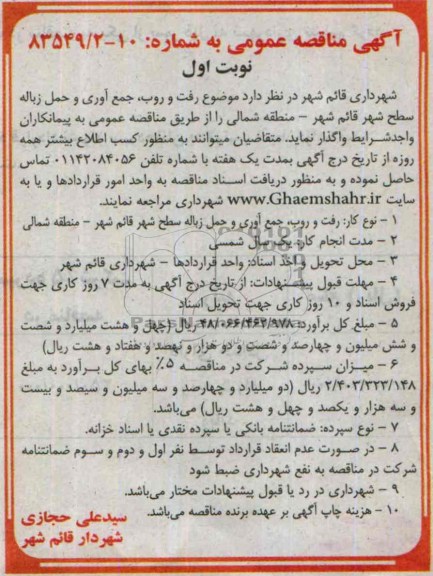 آگهی مناقصه عمومی به شماره: ۱۰-۸۳۵۴۹/۲
نوبت اول
شهرداری قائم شهر در نظر دارد موضوع رفت و روب، جمع آوری و حمل زباله
سطح شهر قائم شهر – منطقه شمالی را از طریق مناقصه عمومی به پیمانکاران
واجدشرایط واگذار نماید. متقاضیان میتوانند به منظور کسب اطلاع بیشتر همه
روزه از تاریخ درج آگهی بمدت یک هفته با شماره تلفن ۰۱۱۴۲۰۸۴۰۵۶ تماس
حاصل نموده و به منظور دریافت اسناد مناقصه به واحد امور قراردادها و یا به
سایت www.Ghaemshahr.ir شهرداری مراجعه نمایند.
۱ – نوع کار: رفت و روب، جمع آوری و حمل زباله سطح شهر قائم شهر – منطقه شمالی
۲ – مدت انجام کار: یک سال شمسی
۳ – محل تحویل و اخذ اسناد: واحد قراردادها – شهرداری قائم شهر
۴ – مهلت قبول پیشنهادات: از تاریخ درج آگهی به مدت ۷ روز کاری جهت
فروش اسناد و ۱۰ روز کاری جهت تحویل اسناد
۵ – مبلغ کل برآورد: ۴۸/۰۶۶/۴۶۲/۹۷۸ ریال (چهل و هشت میلیارد و شصت
و شش میلیون و چهارصد و شصت و دو هزار و نهصد و هفتاد و هشت ریال)
۶ – میزان سپرده شرکت در مناقصه ۵٪ بهای کل برآورد به مبلغ
۲/۴۰۳/۳۲۳/۱۴۸ ریال (دو میلیارد و چهارصد و سه میلیون و سیصد و بیست
و سه هزار و یکصد و چهل و هشت ریال) می‌باشد.
۷ – نوع سپرده: ضمانتنامه بانکی یا سپرده نقدی یا اسناد خزانه.
۸ – در صورت عدم انعقاد قرارداد توسط نفر اول و دوم و سوم ضمانتنامه
شرکت در مناقصه به نفع شهرداری ضبط شود
۹ – شهرداری در رد یا قبول پیشنهادات مختار می‌باشد.
۱۰ – هزینه چاپ آگهی بر عهده برنده مناقصه می‌باشد.
سیدعلی حجازی
شهردار قائم شهر